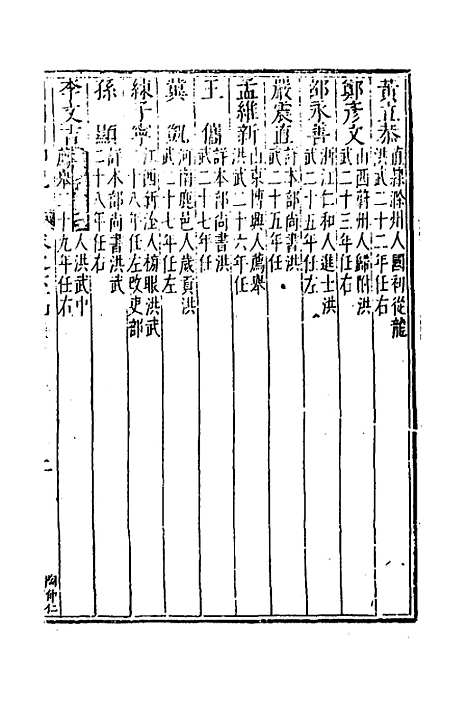 黃立恭 直隸滁州人國初從龍
洪武二十二年任右
鄭彦文 山西蔚州人歸附洪
武二十三年任右
邵永善 浙江仁和人進士洪
武二十五年任左
嚴震直 詳本部尚書洪
武二十五年任
孟維新 山東博興人薦舉
洪武二十六年任
王儁 詳本部尚書洪
武二十七年任
黃凱 河南鹿邑人歲貢洪
武二十七年任左
練子寧 江西新淦人榜眼洪武
十八年任左改吏部
孫顯 詳本部尚書洪武
二十八年任右
李文吉 人洪武中
薦舉二十九年任右
陶仲仁